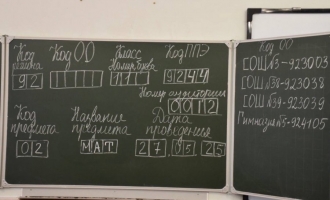 Код региона
92
Код ОО
Класс
Номер буква
11
Код ППЭ
9244
Номер аудитории
0012
Код предмета
02
Название предмета
МАТ
Дата проведения
27 05 25
Код ОО
СОШ №3-923003
СОШ №38-923038
СОШ №39-923039
Гимназия №5-924105